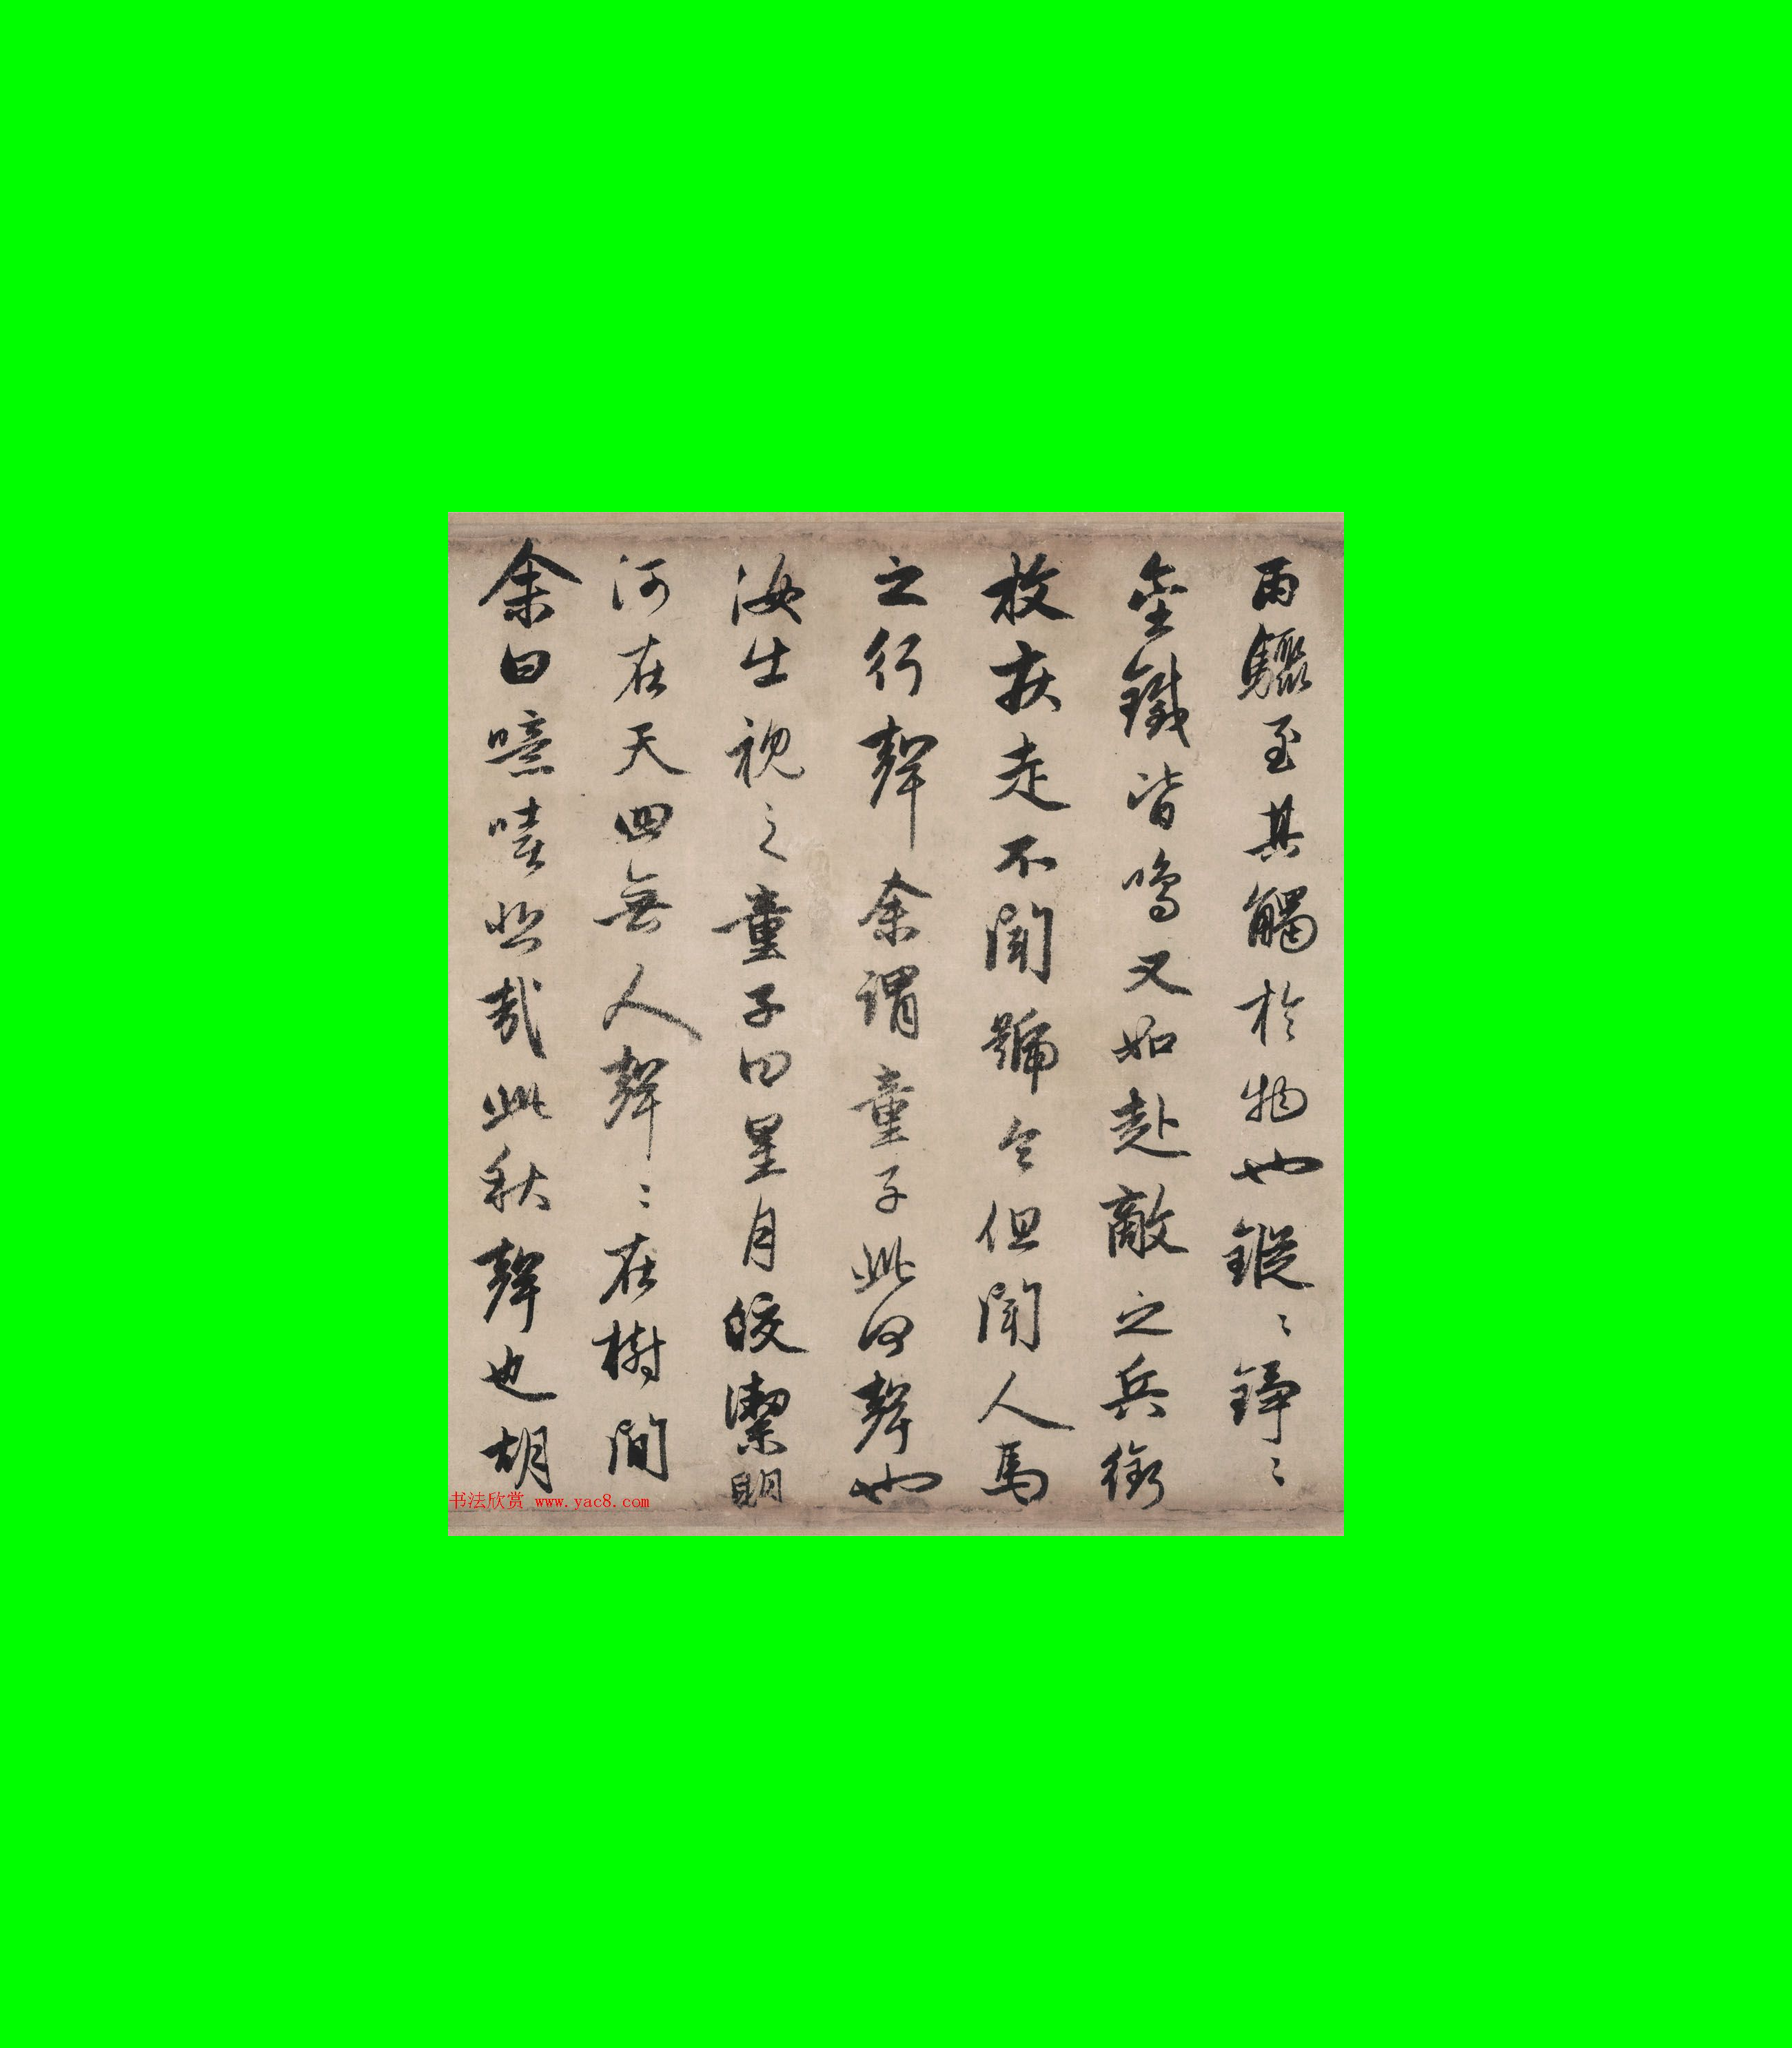 雨驟至其觸於物也鏦〻錚〻
金鐵皆鳴又如赴敵之兵銜
枚疾走不聞號令但聞人馬
之行聲余謂童子此何聲也
汝出視之童子曰星月皎潔明
河在天四無人聲〻在樹間
余曰噫嘻悲哉此秋聲也胡
书法欣赏 www.yac8.com